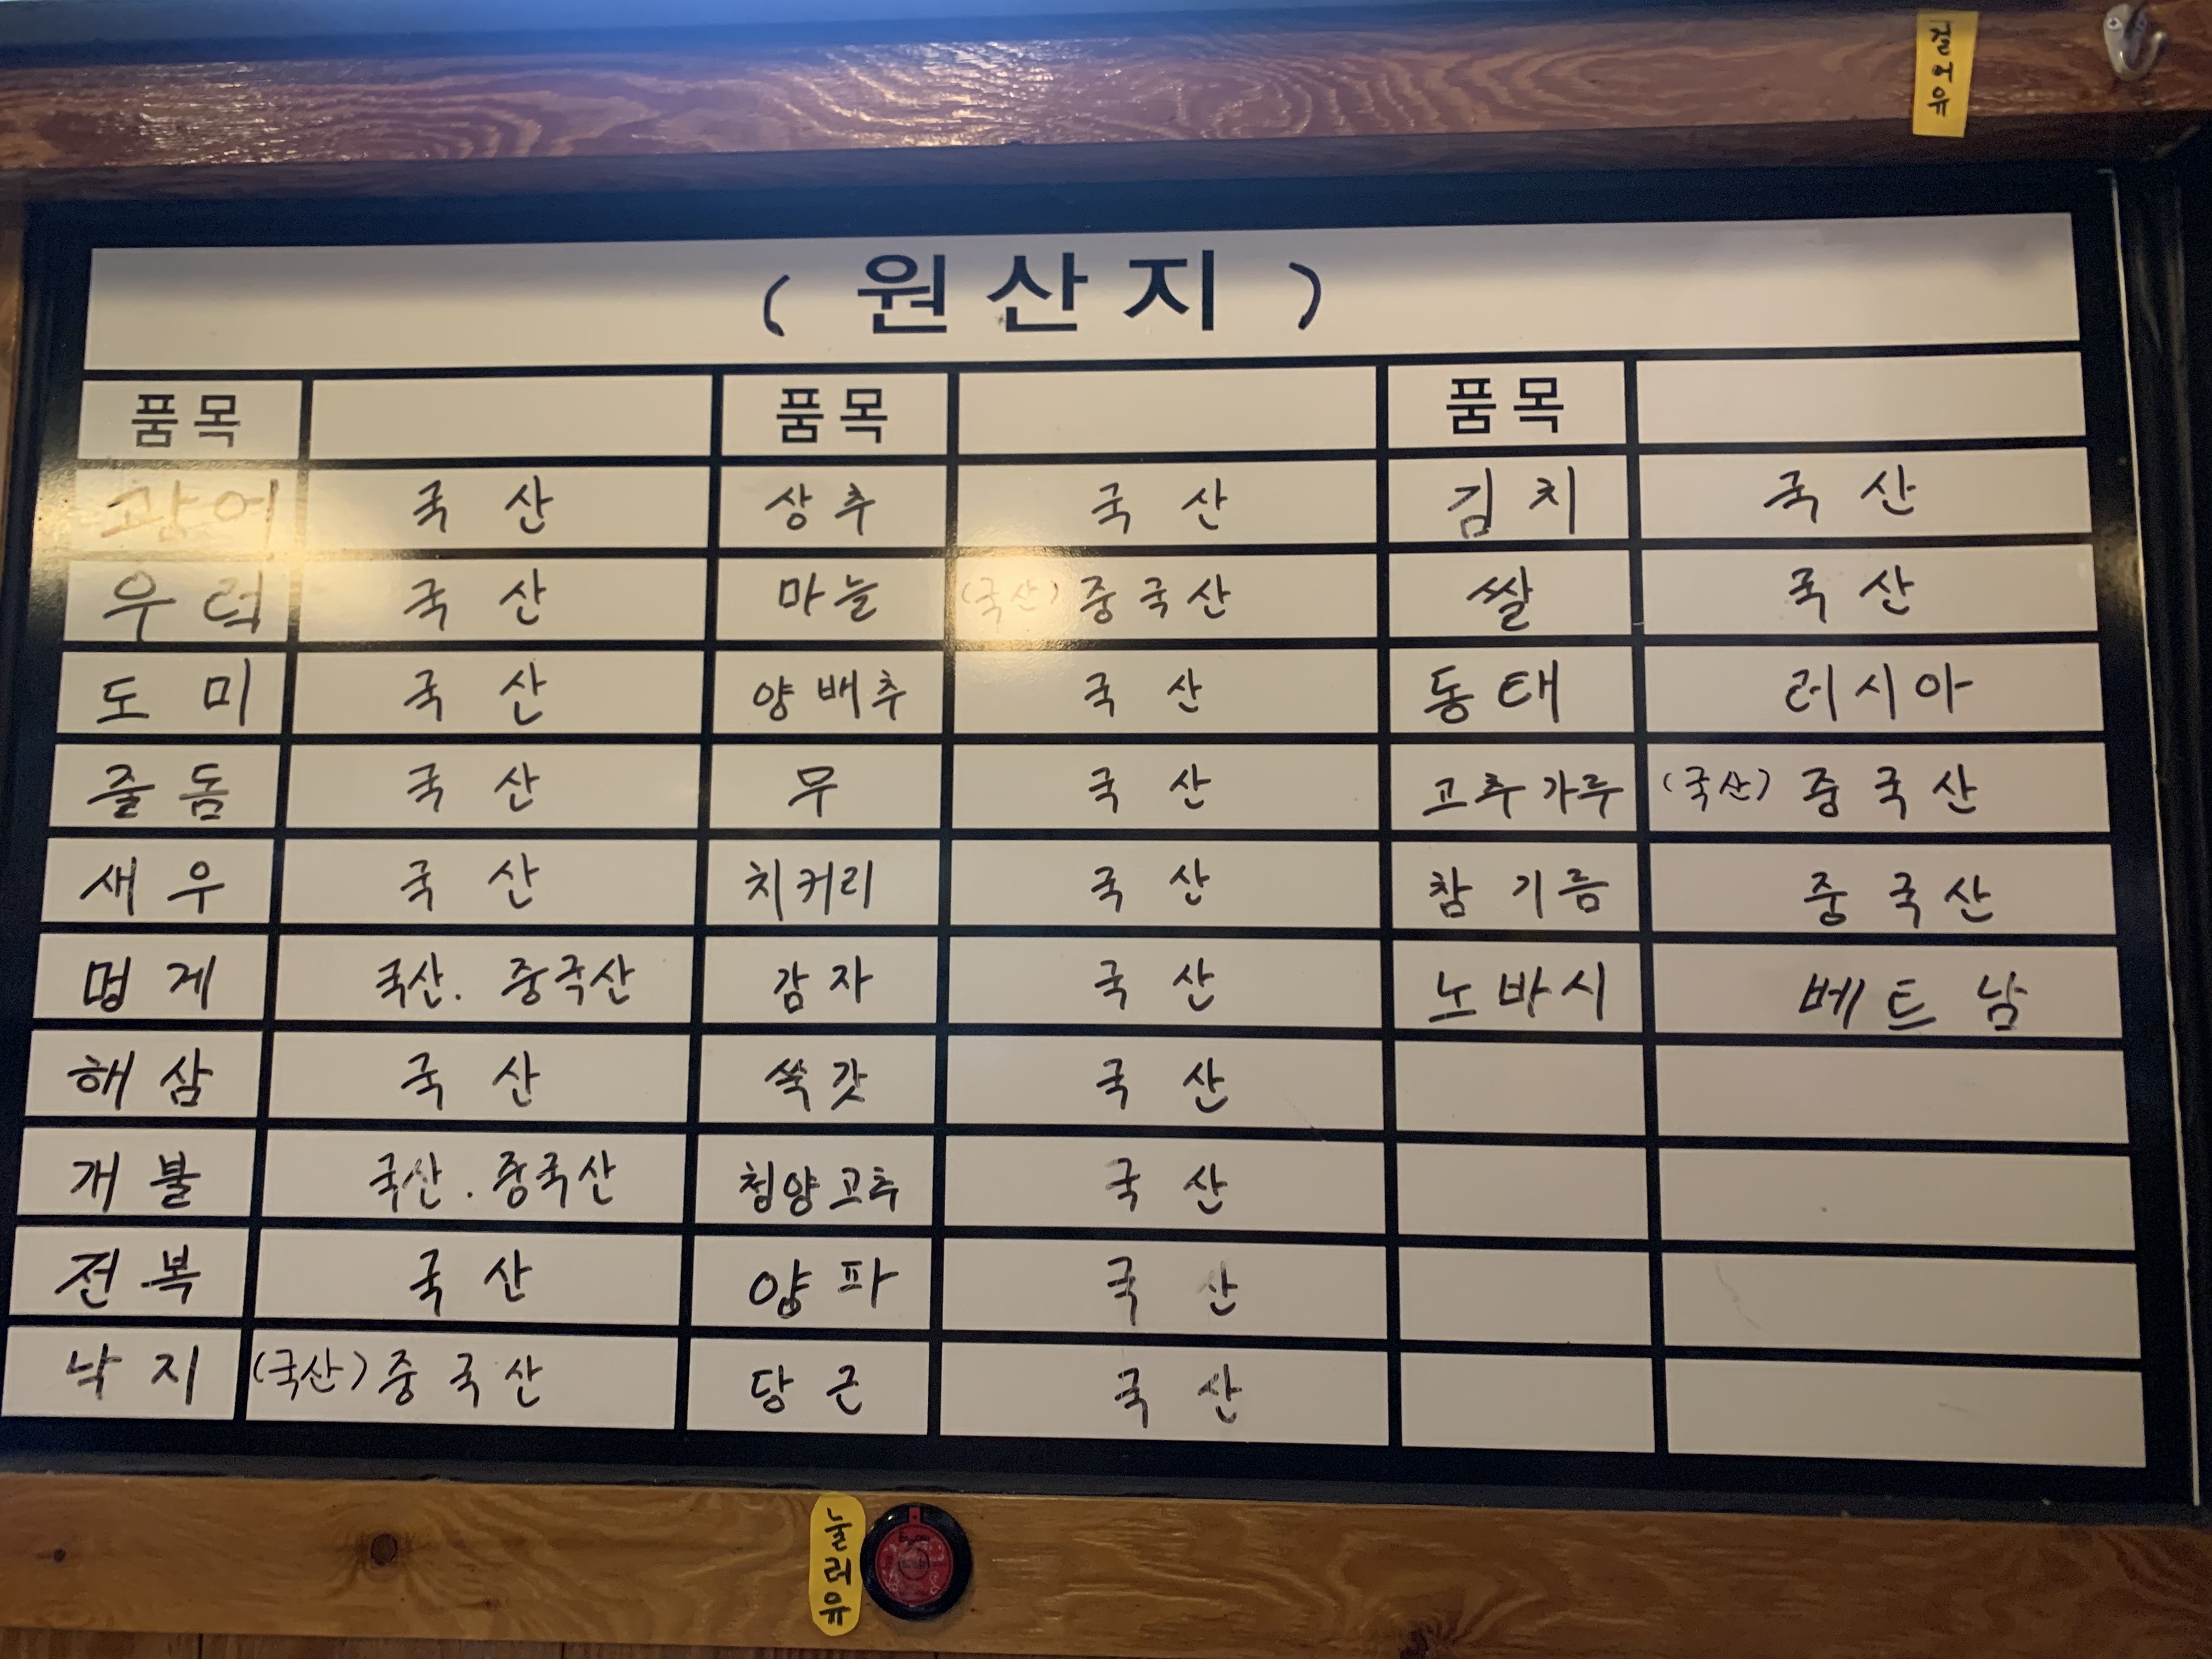 걸어유
( 원산지 )
품목 품목 품목
광어 국산 상추 국산 김치 국산
우럭 국산 마늘 (국산) 중국산 쌀 국산
도미 국산 양배추 국산 동태 러시아
줄돔 국산 무 국산 고추가루 (국산) 중국산
새우 국산 치커리 국산 참기름 중국산
멍게 국산. 중국산 감자 국산 노바시 베트남
해삼 국산 쑥갓 국산
개불 국산. 중국산 청양고추 국산
전복 국산 양파 국산
낙지 (국산) 중국산 당근 국산
눌러유